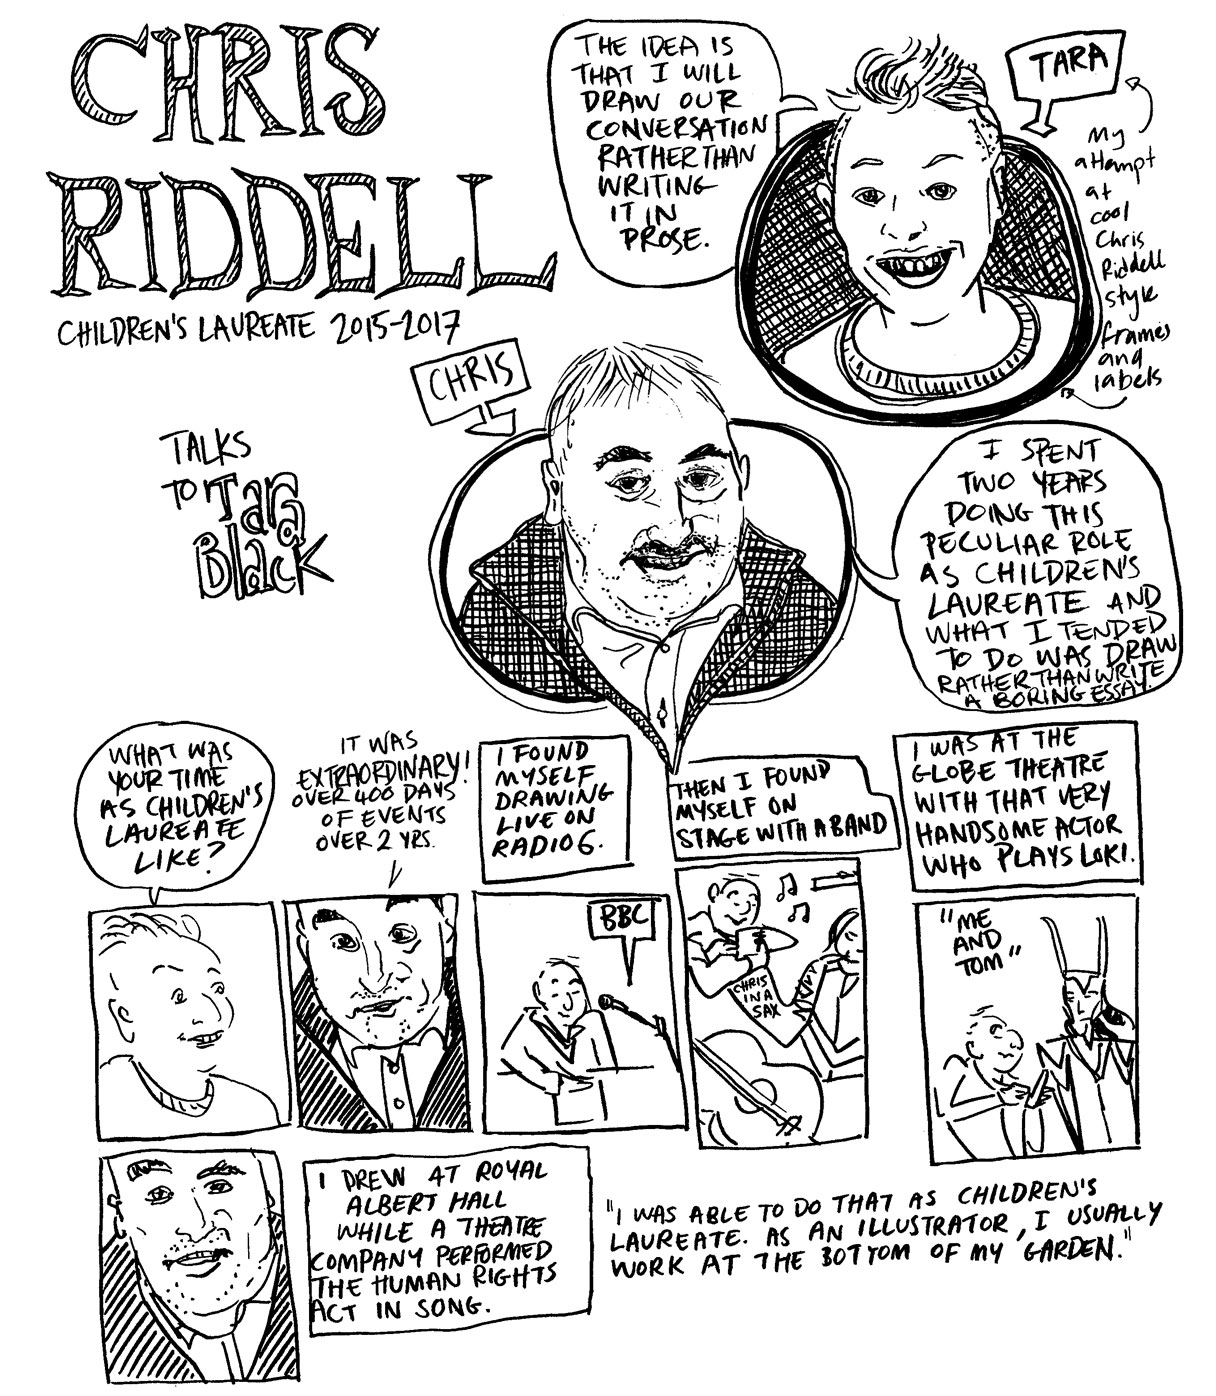 CHRIS
RIDDELL
CHILDREN'S LAUREATE 2015-2017
TALKS
TO Tara
Black
THE IDEA IS
THAT I WILL
DRAW OUR
CONVERSATION
RATHER THAN
WRITING
IT IN
PROSE.
TARA
My
attempt
at
cool
Chris
Riddell
style
frames
and
labels
CHRIS
I SPENT
TWO YEARS
DOING THIS
PECULIAR ROLE
AS CHILDREN'S
LAUREATE AND
WHAT I TENDED
TO DO WAS DRAW
RATHER THAN WRITE
A BORING ESSAY.
WHAT WAS
YOUR TIME
AS CHILDREN'S
LAUREATE
LIKE?
IT WAS
EXTRAORDINARY!
OVER 400 DAYS
OF EVENTS
OVER 2 YRS.
I FOUND
MYSELF
DRAWING
LIVE ON
RADIO 6.
BBC
THEN I FOUND
MYSELF ON
STAGE WITH A BAND
CHRIS
IN A
SAX
I WAS AT THE
GLOBE THEATRE
WITH THAT VERY
HANDSOME ACTOR
WHO PLAYS LOKI.
"ME
AND
TOM"
I DREW AT ROYAL
ALBERT HALL
WHILE A THEATRE
COMPANY PERFORMED
THE HUMAN RIGHTS
ACT IN SONG.
"I WAS ABLE TO DO THAT AS CHILDREN'S
LAUREATE. AS AN ILLUSTRATOR, I USUALLY
WORK AT THE BOTTOM OF MY GARDEN."